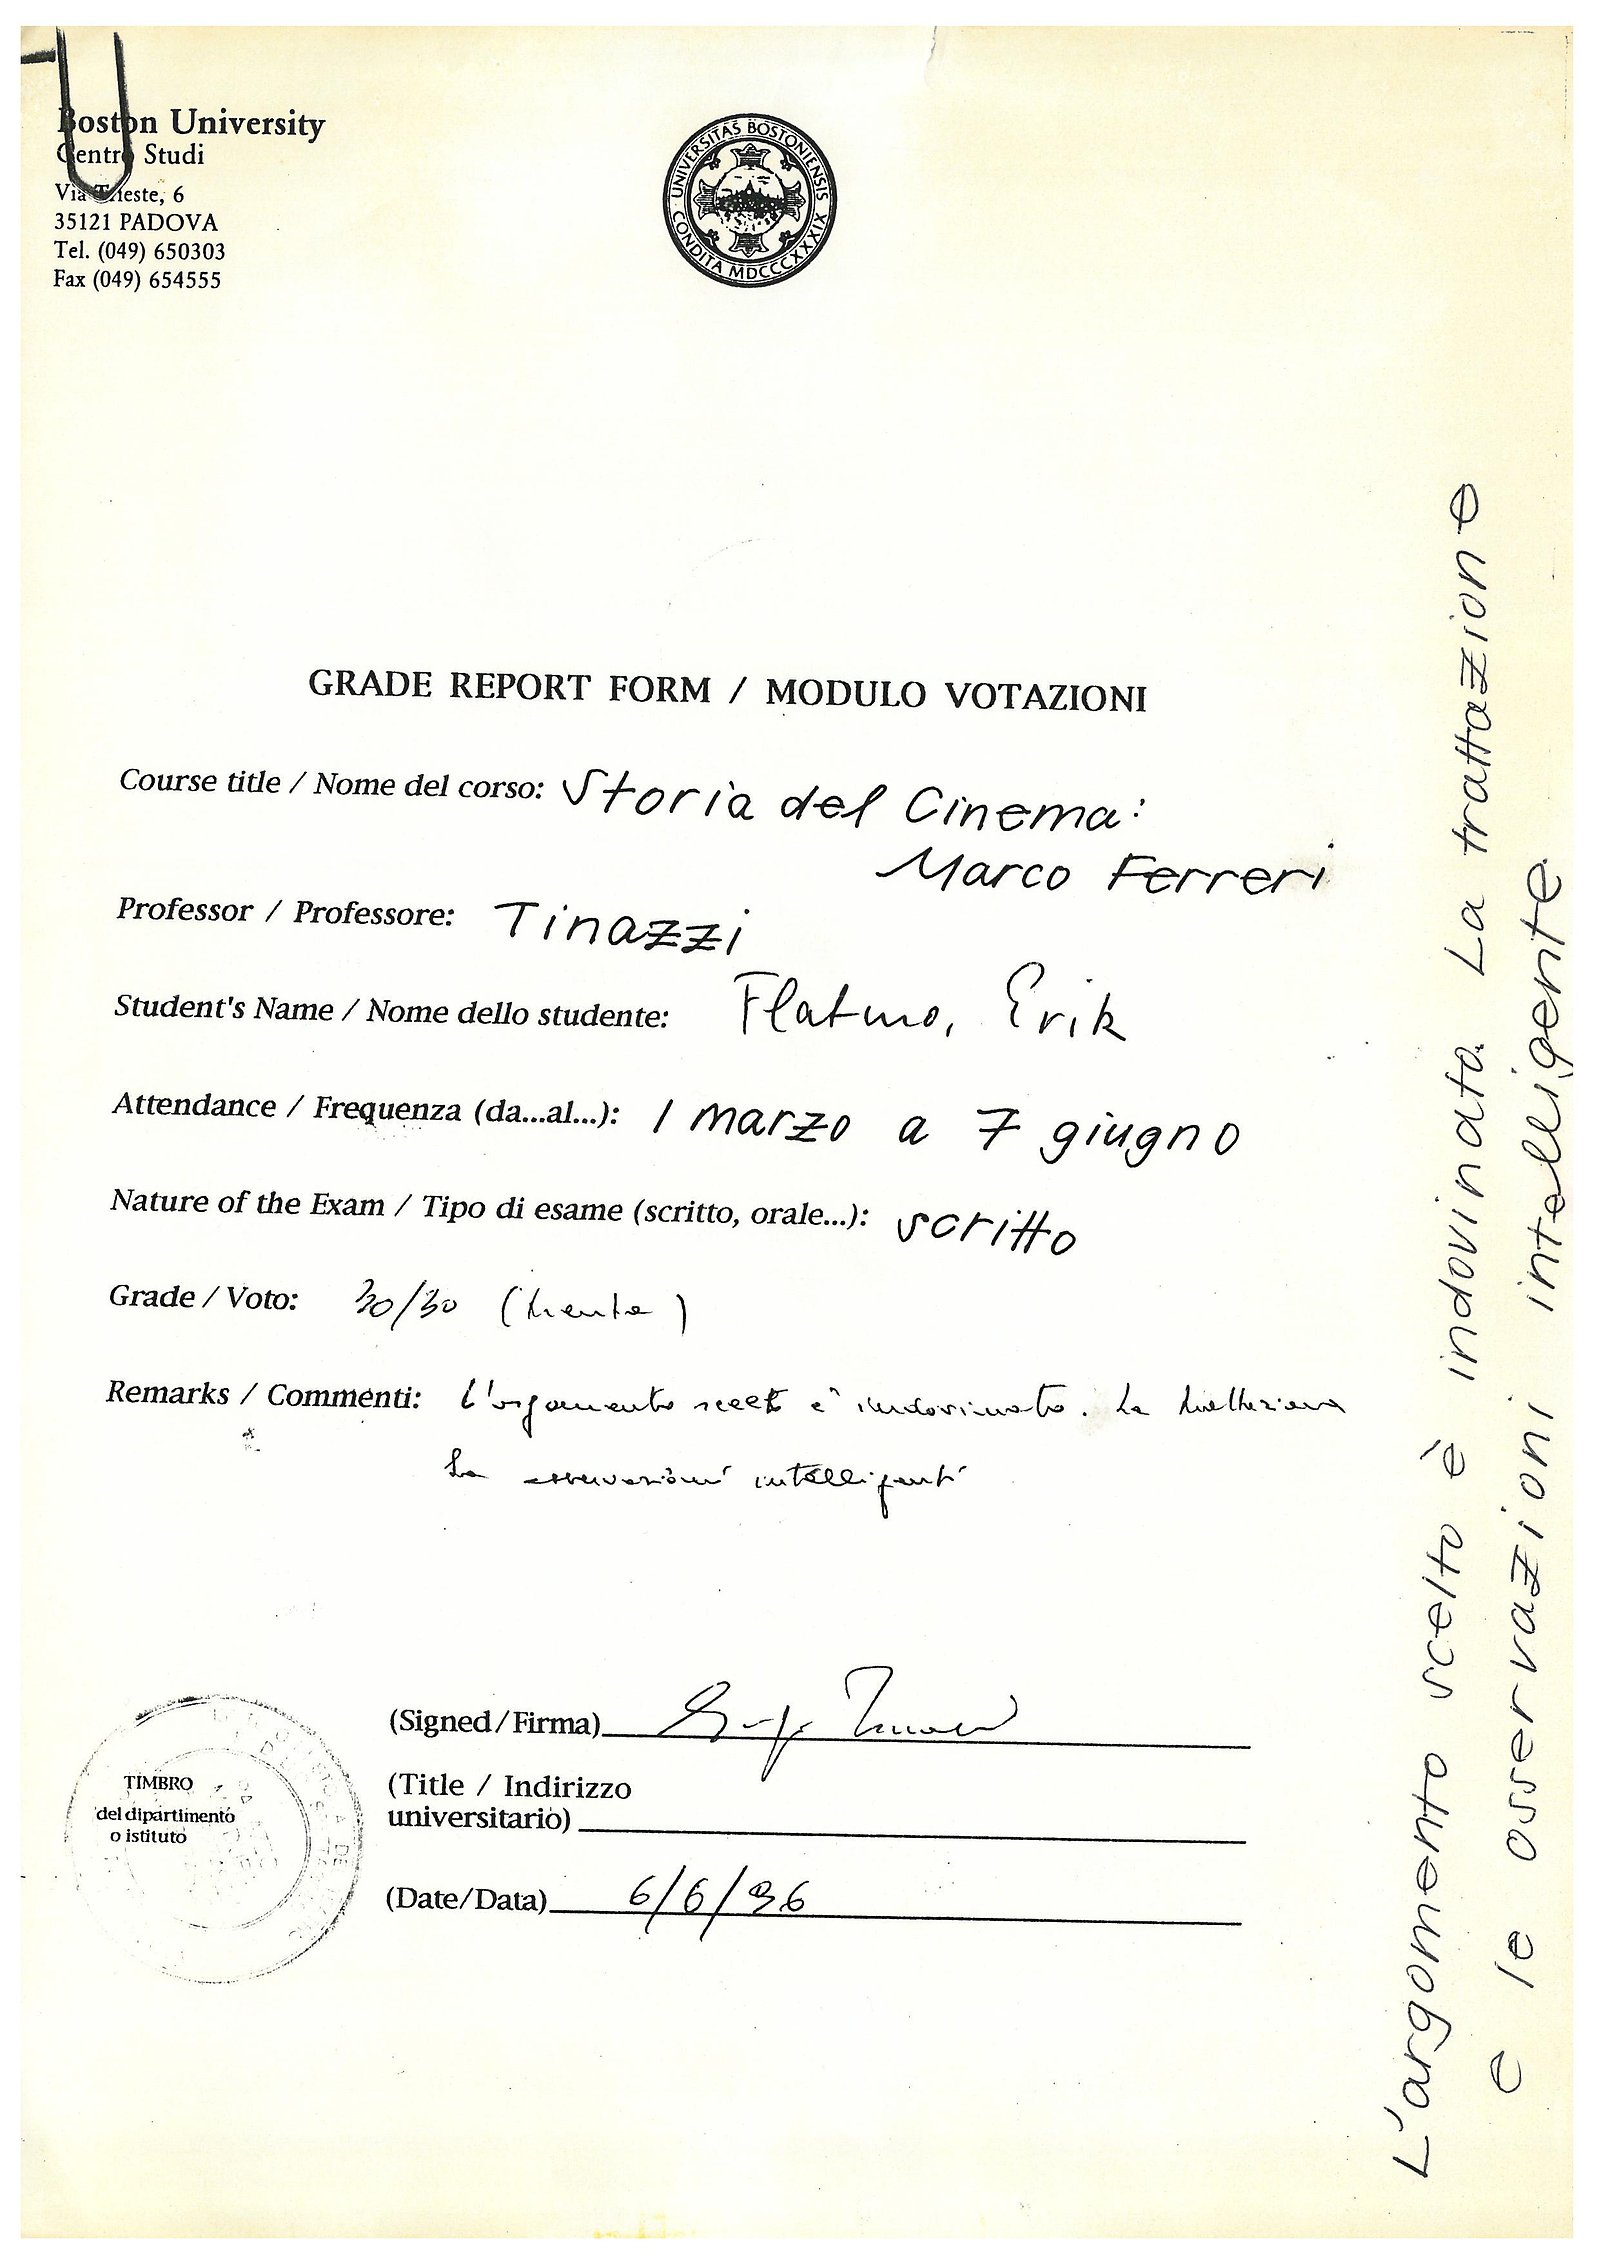 Boston University
Centro Studi
Via Trieste, 6
35121 PADOVA
Tel. (049) 650303
Fax (049) 654555
UNIVERSITAS BOSTONIENSIS
CONDITA MDCCCXXXIX
GRADE REPORT FORM / MODULO VOTAZIONI
Course title / Nome del corso: Storia del Cinema:
Marco Ferreri
Professor / Professore: Tinazzi
Student's Name / Nome dello studente: Flatmo, Erik
Attendance / Frequenza (da...al...): 1 marzo a 7 giugno
Nature of the Exam / Tipo di esame (scritto, orale...): scritto
Grade / Voto: 30/30 (trenta)
Remarks / Commenti: L'argomento scelto è indovinato. La trattazione
le osservazioni intelligenti
(Signed/Firma)
(Title / Indirizzo
universitario)
(Date/Data) 6/6/96
TIMBRO
del dipartimento
o istituto
L'argomento scelto è indovinato. La trattazione
e le osservazioni intelligente